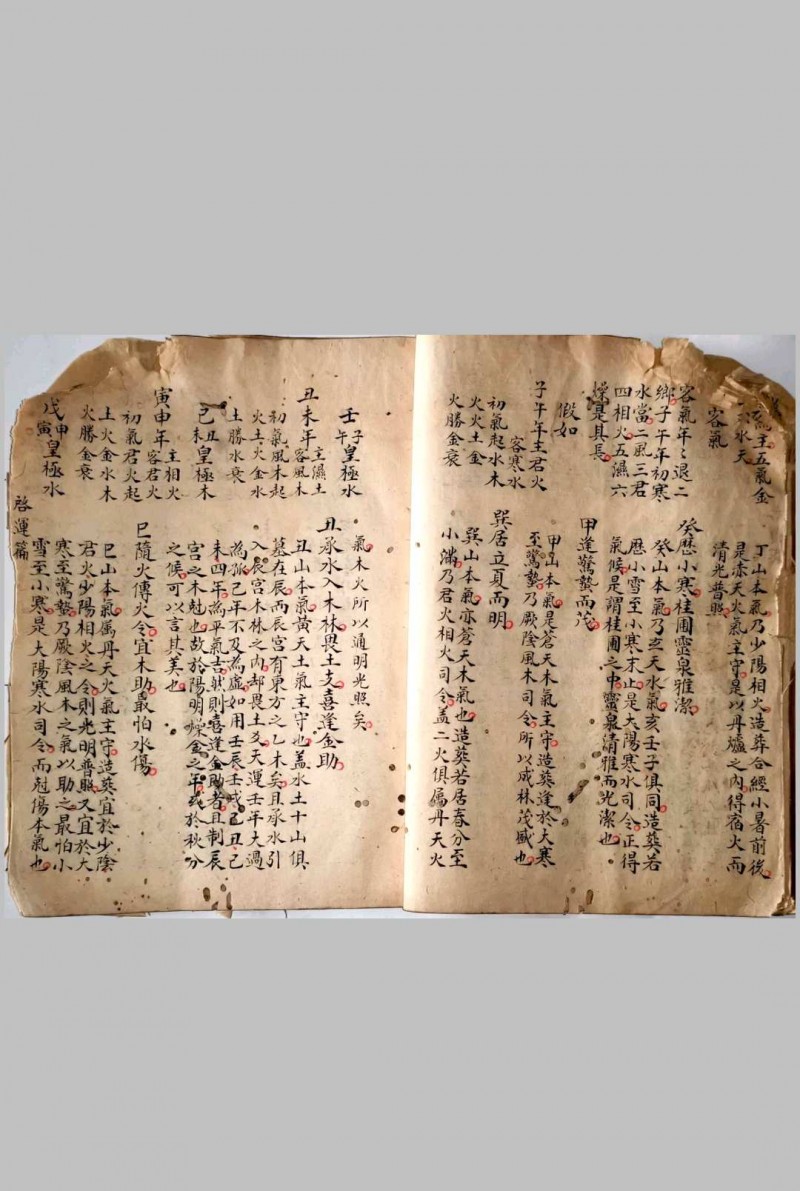 氣主五氣金
水天
客氣
客氣年々退二
鄉子午年初寒
水當二風三君
四相火五濕六
燥是其長
假如
子午年主君火
客寒水
初氣起水木
火火土金
火勝金衰
丁山本氣乃少陽相火造葬合經小暑前後
是赤天火氣主守是以丹爐之內得宿火而
清光普照
癸歷小寒桂圃靈泉雅潔
癸山本氣乃玄天水氣亥壬子俱同造葬若
歷小雪至小寒末止是大陽寒水司令正得
氣候是謂桂圃之中靈泉清雅而光潔也
甲逢驚蟄而茂
甲山本氣是蒼天木氣主守造葬逢於大寒
至驚蟄乃厥陰風木司令所以成林茂盛也
巽居立夏而明
巽山本氣亦蒼天木氣也造葬若居春分至
小滿乃君火相火司令蓋二火俱屬丹天火
壬子午皇極水
丑未年主濕土
客風木
初氣風木起
火土火金水
土勝水衰
己丑未皇極木
寅申年主相火
客君火
初氣君火起
土火金水木
火勝金衰
戊申寅皇極水
氣木火所以通明光照矣
丑承水入木林畏土爻喜逢金助
丑山本氣黃天土氣主守也蓋水土十山俱
墓在辰而辰宮有東方之乙木矣且承水引
入辰宮木林之內却畏土爻天運壬年大過
為孤己年不及為虛如用壬辰壬戌己丑己
未四年為平氣吉然則喜逢金助者且制辰
宮之木尅也故於陽明燥金之年或於秋分
之候可以言其美也
巳隨火傳火令宜木助最怕水傷
巳山本氣属丹天火氣主守造葬宜於少陰
君火少陽相火之令則光明普照又宜於大
寒至驚蟄乃厥陰風木之氣以助之最怕小
雪至小寒是大陽寒水司令而尅傷本氣也
啓運篇